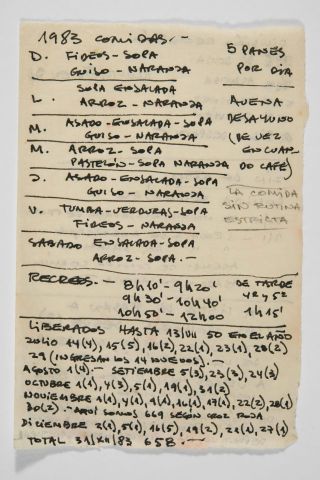 1983 COMIDAS.-
D. FIDEOS-SOPA
GUISO-NARANJA
SOPA ENSALADA
L. ARROZ-NARANJA
M. ASADO-ENSALADA-SOPA
GUISO-NARANJA
M. ARROZ-SOPA
PASTELÓN-SOPA NARANJA
J. ASADO-ENSALADA-SOPA
GUISO-NARANJA
V. TUMBA-VERDURAS-SOPA
FIDEOS-NARANJA
SABADO ENSALADA-SOPA
ARROZ-SOPA.-
5 PANES
POR DIA
AVENA
DESAYUNO
(DE VEZ
EN CUAN
DO CAFÉ)
LA COMIDA
SIN RUTINA
ESTRICTA
RECREOS.- 8h10'-9h20'
9h30'-10h40'
10h50'-12h00
DE TARDE
4ª y 5ª
1h15'
LIBERADOS HASTA 13/VII 50 EN EL AÑO
JULIO 14(4), 15(5), 16(2), 22(1), 23(1), 28(2)
29 (INGRESAN LOS 14 NUEVOS).-
AGOSTO 1(4).- SETIEMBRE 5(3), 23(3), 24(3)
OCTUBRE 1(1), 4(3), 5(1), 19(1), 31(2)
NOVIEMBRE 1(1), 4(1), 9(1), 16(1), 17(1), 22(2), 28(1)
30(2).- AQUÍ SOMOS 669 SEGÚN CRUZ ROJA
DICIEMBRE 2(1), 5(1), 16(5), 19(2), 21(1), 27(1)
TOTAL 31/XII/83 658.-